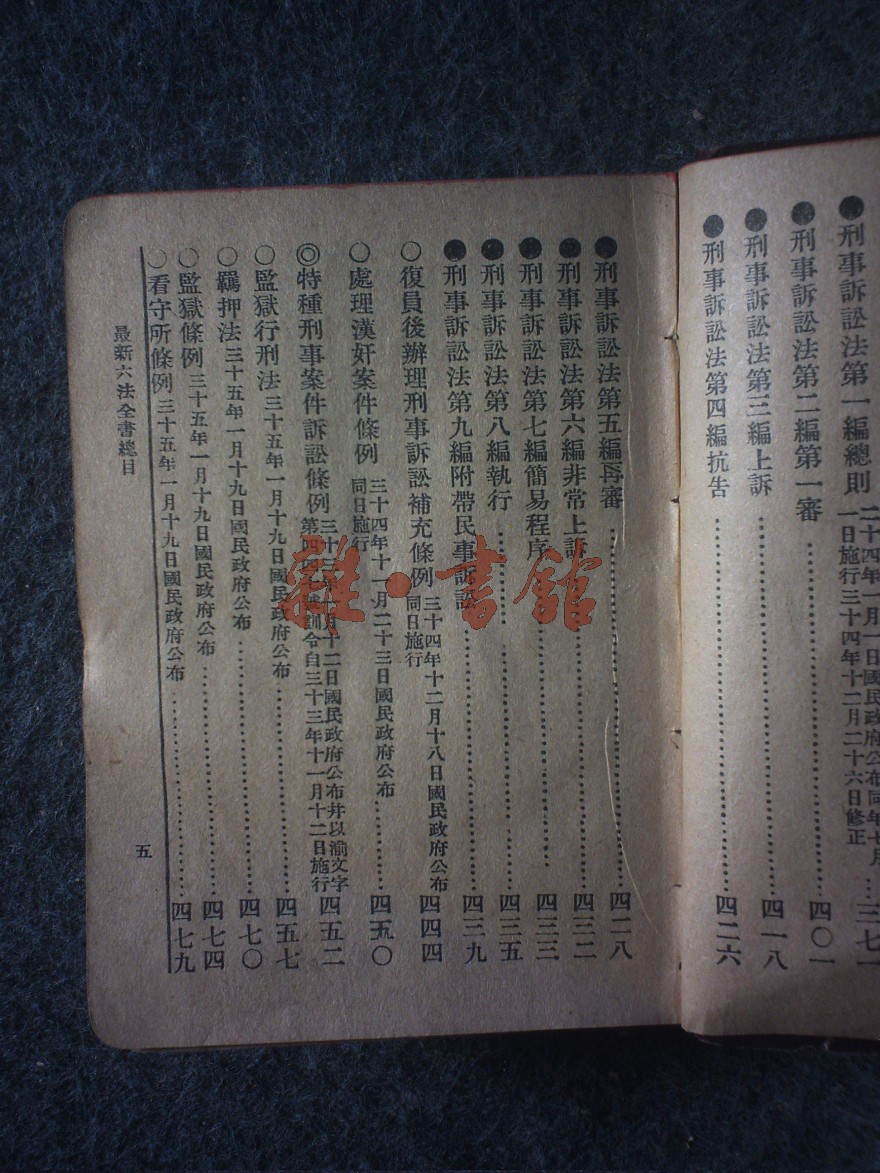 ●刑事訴訟法第一編總則 二十四年一月一日國民政府公布同年七月一日施行三十四年十二月二十六日修正……三七一
●刑事訴訟法第二編第一審……四〇一
●刑事訴訟法第三編上訴……四一八
●刑事訴訟法第四編抗告……四二六
●刑事訴訟法第五編再審……四二八
●刑事訴訟法第六編非常上訴……四三二
●刑事訴訟法第七編簡易程序……四三三
●刑事訴訟法第八編執行……四三五
●刑事訴訟法第九編附帶民事訴訟……四三九
○復員後辦理刑事訴訟補充條例 三十四年十二月十八日國民政府公布同日施行 四四四
○處理漢奸案件條例 三十四年十一月二十三日國民政府公布同日施行……四五〇
◎特種刑事案件訴訟條例 三十三年一月十二日國民政府公布并以渝文字第四四號訓令自三十三年十一月十二日施行 四五二
○監獄行刑法 三十五年一月十九日國民政府公布……四五七
○羈押法 三十五年一月十九日國民政府公布……四七〇
○監獄條例 三十五年一月十九日國民政府公布……四七四
○看守所條例 三十五年一月十九日國民政府公布……四七九
最新六法全書總目
五
雜·書館